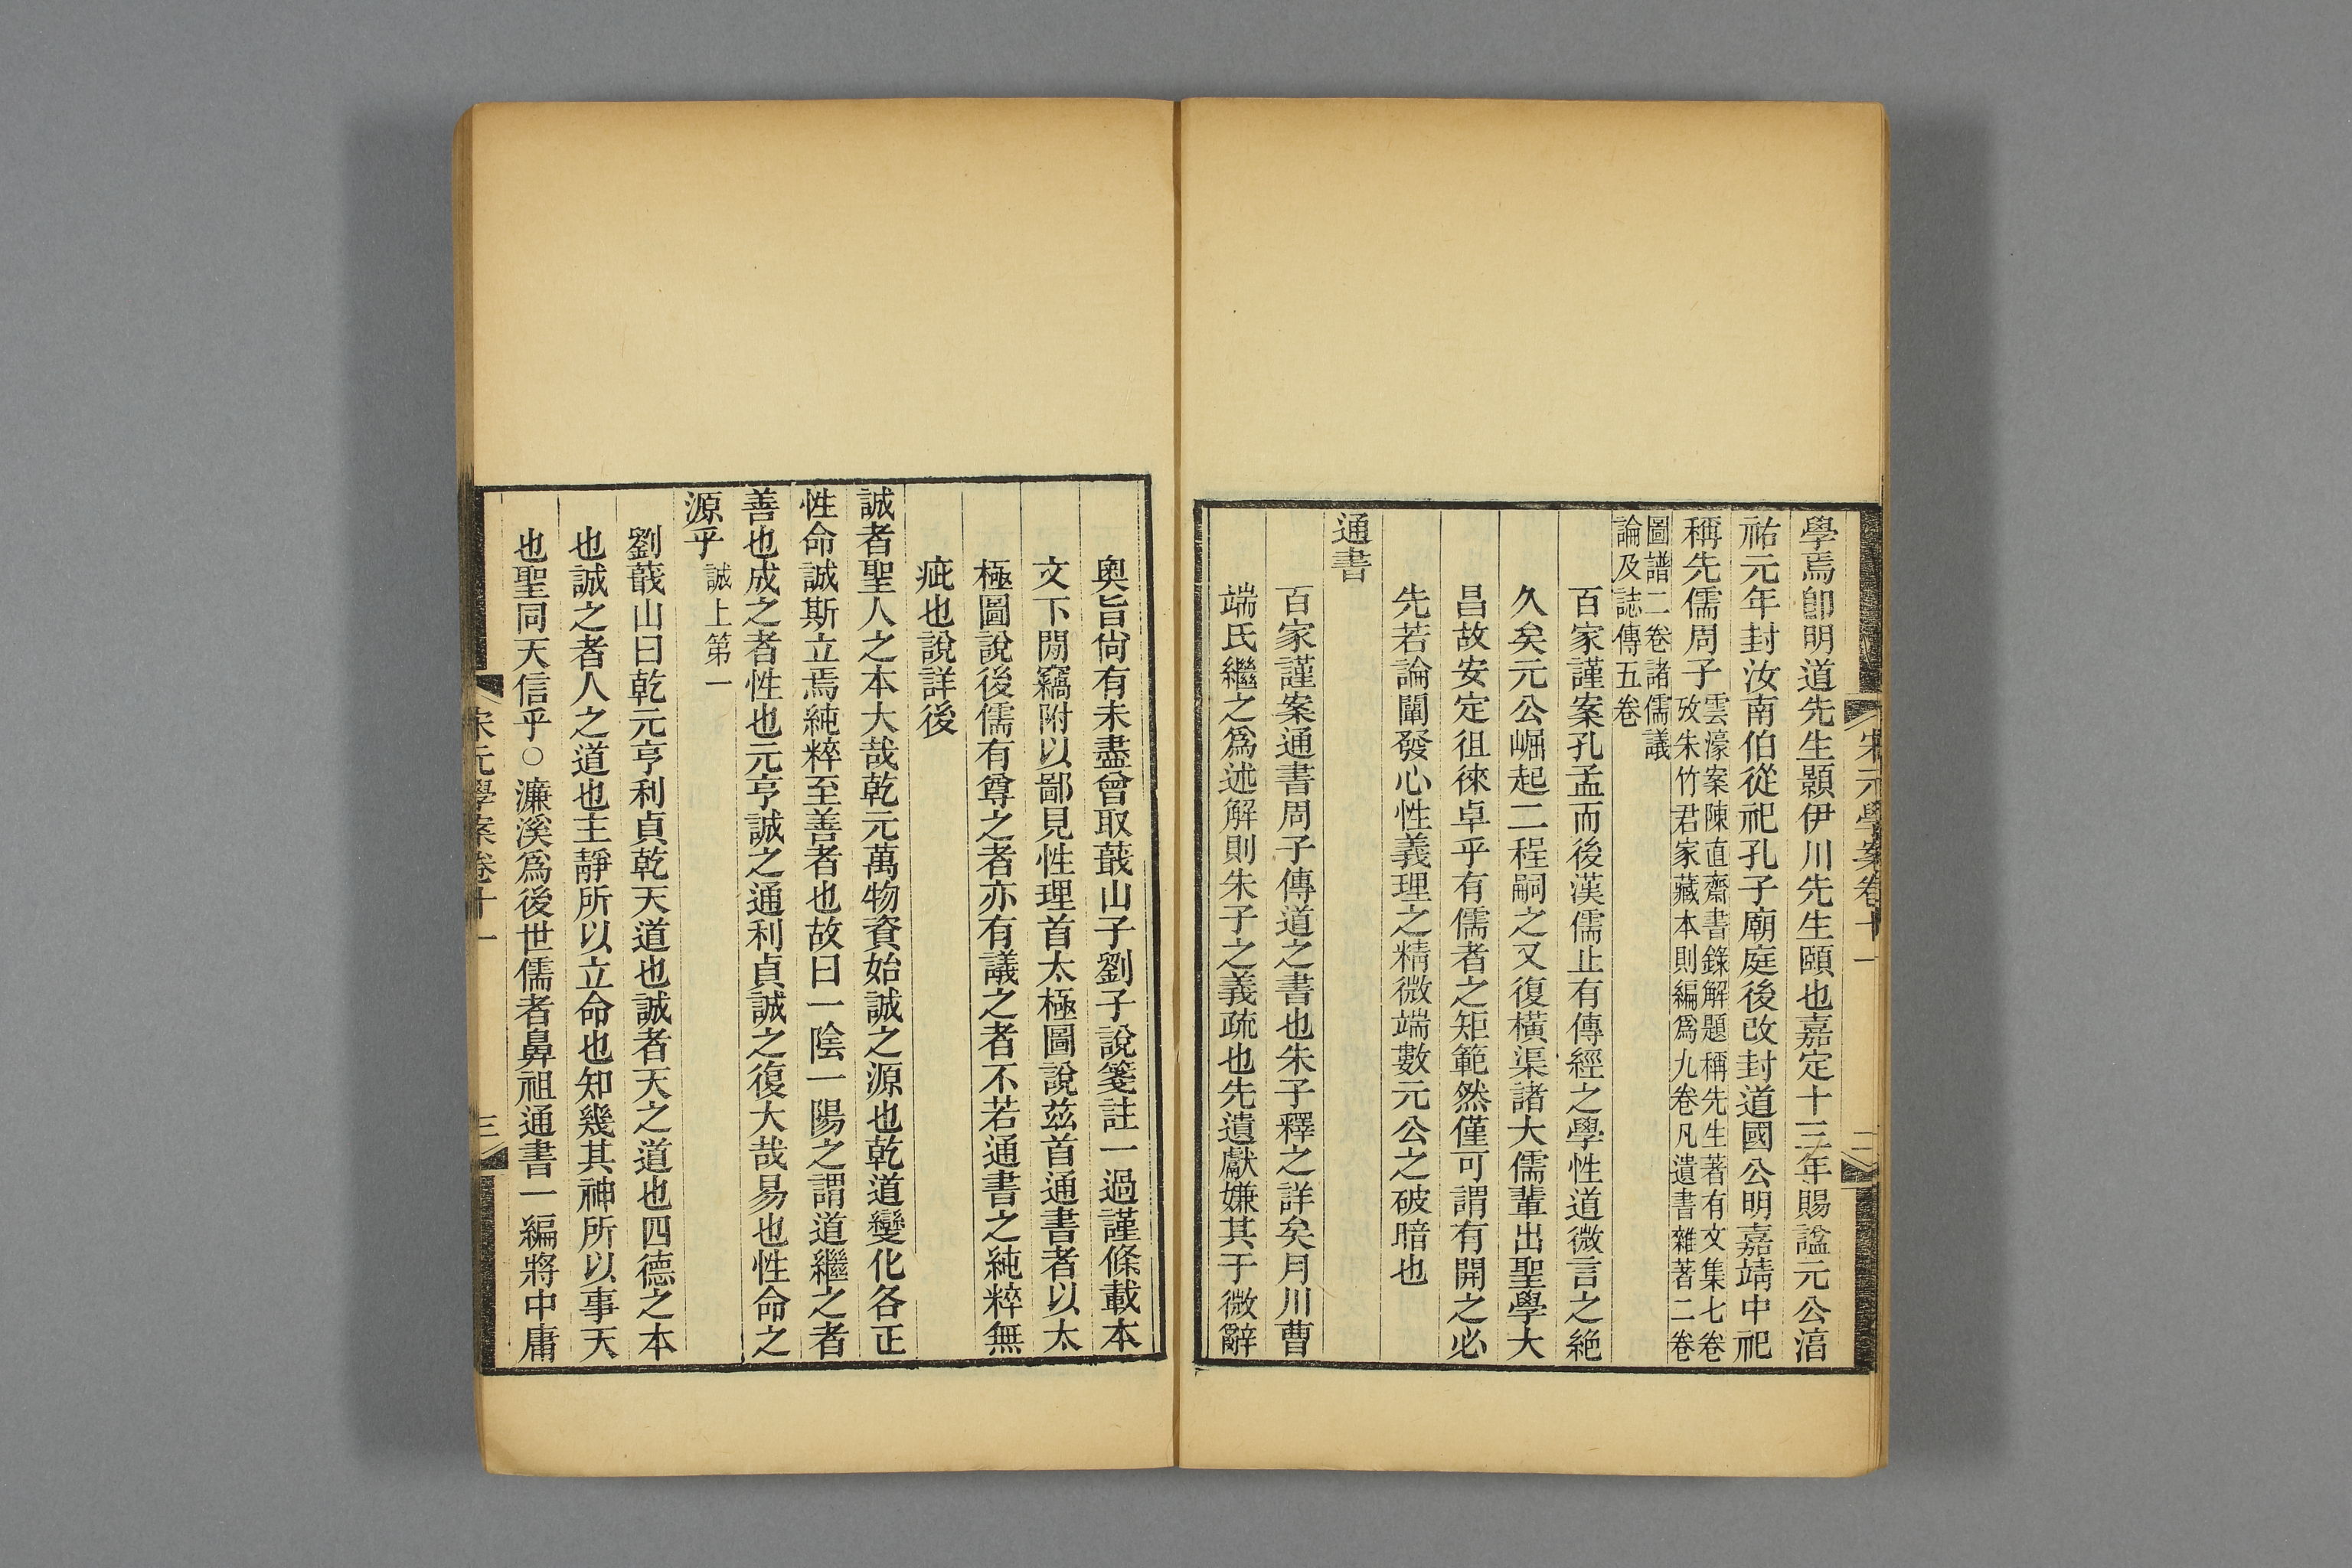 學焉卽明道先生顥伊川先生頤也嘉定十三年賜諡元公淳
祐元年封汝南伯從祀孔子廟庭後改封道國公明嘉靖中祀
稱先儒周子
雲濠案陳直齋書錄解題稱先生著有文集七卷
攷朱竹君家藏本則編爲九卷凡遺書雜著二卷
圖譜二卷諸儒議
論及誌傳五卷
百家謹案孔孟而後漢儒止有傳經之學性道微言之絕
久矣元公崛起二程嗣之又復橫渠諸大儒輩出聖學大
昌故安定徂徠卓乎有儒者之矩範然僅可謂有開之必
先若論闡發心性義理之精微端數元公之破暗也
通書
百家謹案通書周子傳道之書也朱子釋之詳矣月川曹
端氏繼之爲述解則朱子之義疏也先遺獻嫌其于微辭
宋元學案卷十一
二
奥旨尙有未盡曾取蕺山子劉子說箋註一過謹條載本
文下閒竊附以鄙見性理首太極圖說茲首通書者以太
極圖說後儒有尊之者亦有議之者不若通書之純粹無
疵也說詳後
誠者聖人之本大哉乾元萬物資始誠之源也乾道變化各正
性命誠斯立焉純粹至善者也故曰一陰一陽之謂道繼之者
善也成之者性也元亨誠之通利貞誠之復大哉易也性命之
源乎 誠上第一
劉蕺山曰乾元亨利貞乾天道也誠者天之道也四德之本
也誠之者人之道也主靜所以立命也知幾其神所以事天
也聖同天信乎○濂溪爲後世儒者鼻祖通書一編將中庸
宋元學案卷十一
三